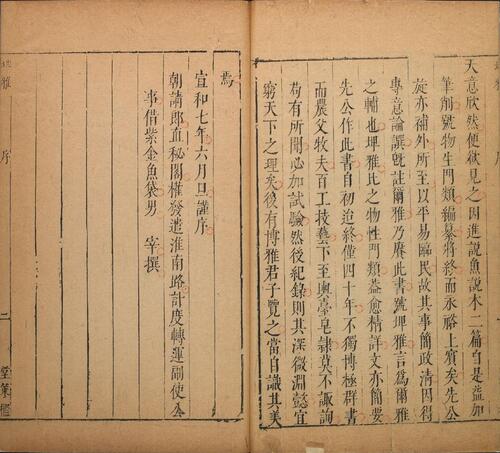 天意欣然便欲見之因進說魚說木二篇自是益加
筆削號物生門類編纂將終而永裕上賓矣先公
旋亦補外所至以平易臨民故其事簡政清因得
專意論譔既註爾雅乃賡此書號埤雅言爲爾雅
之輔也埤雅比之物性門類益愈精詳文亦簡要
先公作此書自初迨終僅四十年不獨博極群書
而農父牧夫百工技藝下至輿臺皂隸莫不諏詢
苟有所聞必加試驗然後紀錄則其深微淵懿宜
窮天下之理矣後有博雅君子覽之當自識其美
焉
宣和七年六月旦謹序
朝請郎直秘閣權發遣淮南路計度轉運副使公
事借紫金魚袋男 宰撰
埤雅 序
二